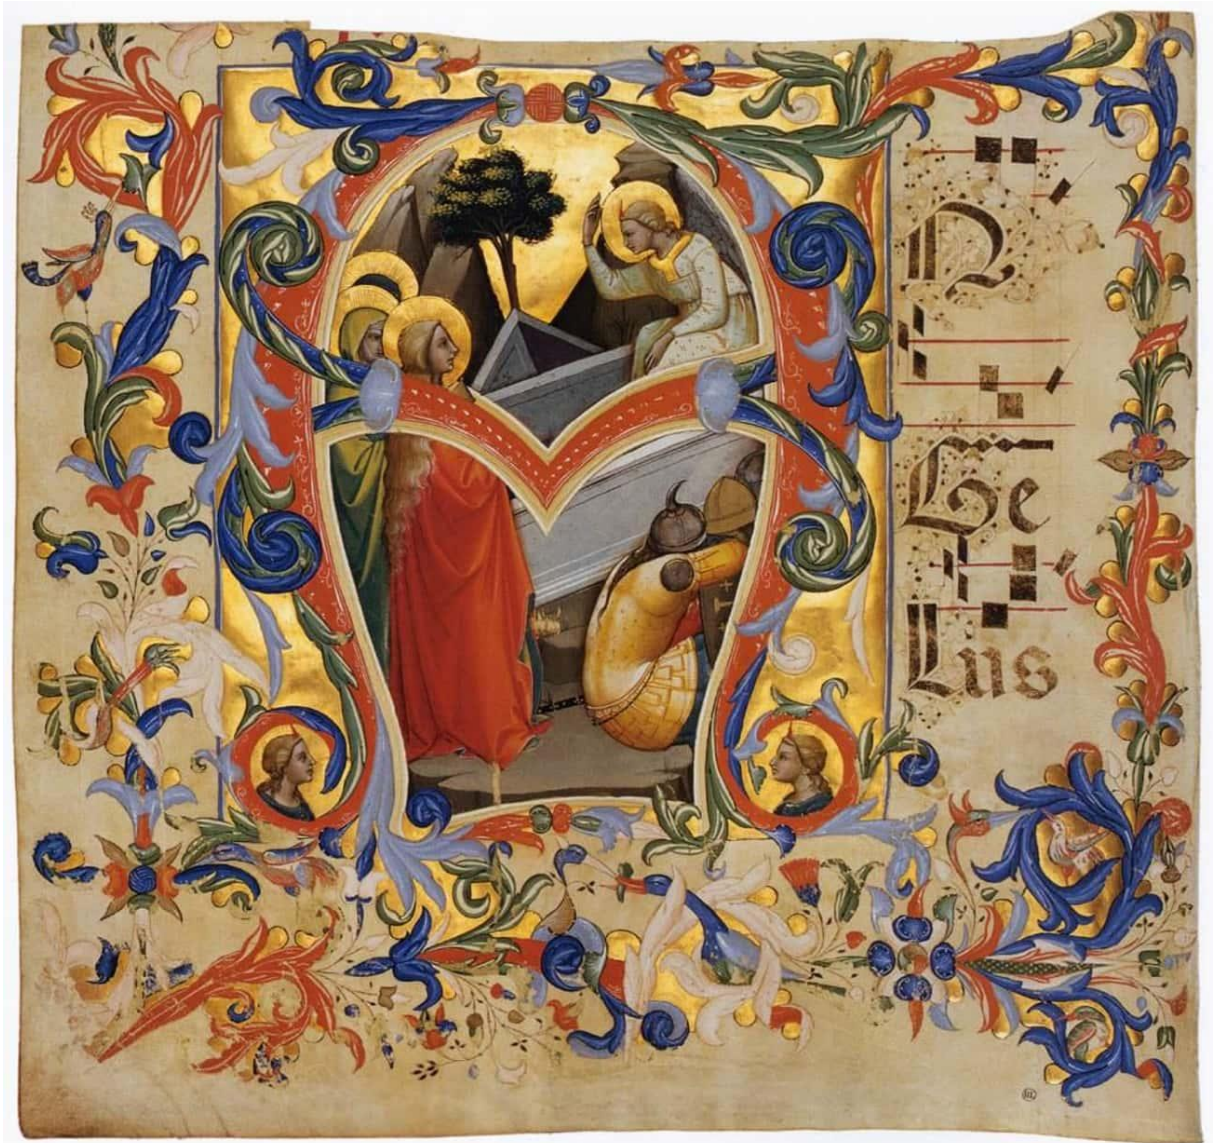 A N
Ge
lus